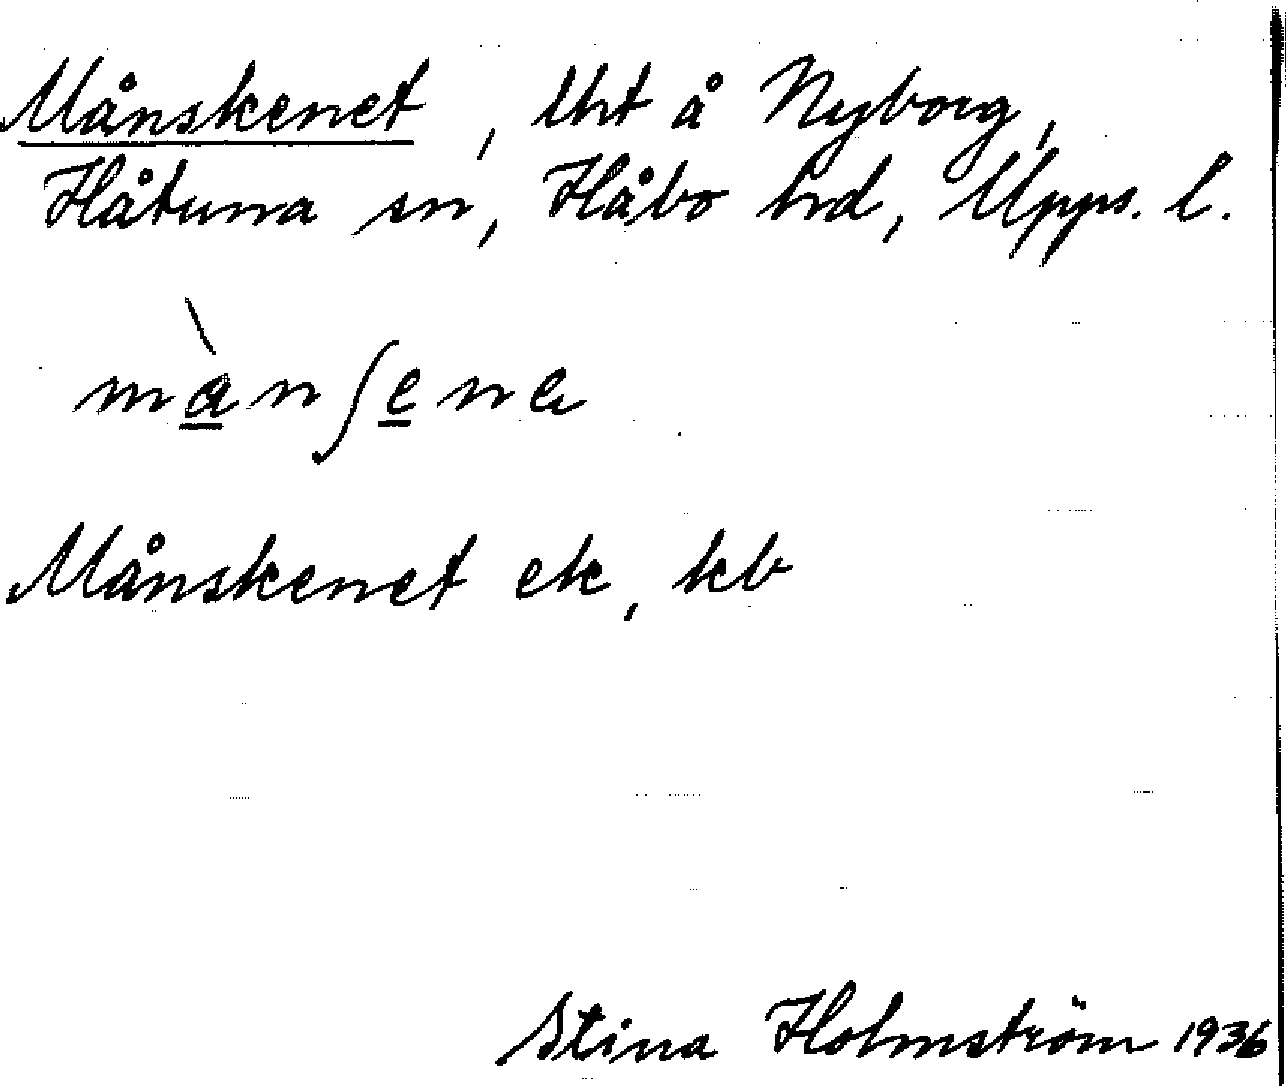 Månskenet, lht å Nyborg,
Håtuna sn, Håbo hrd, Upps. l.
mànʃene
Månskenet ek, kb
Stina Holmström 1936